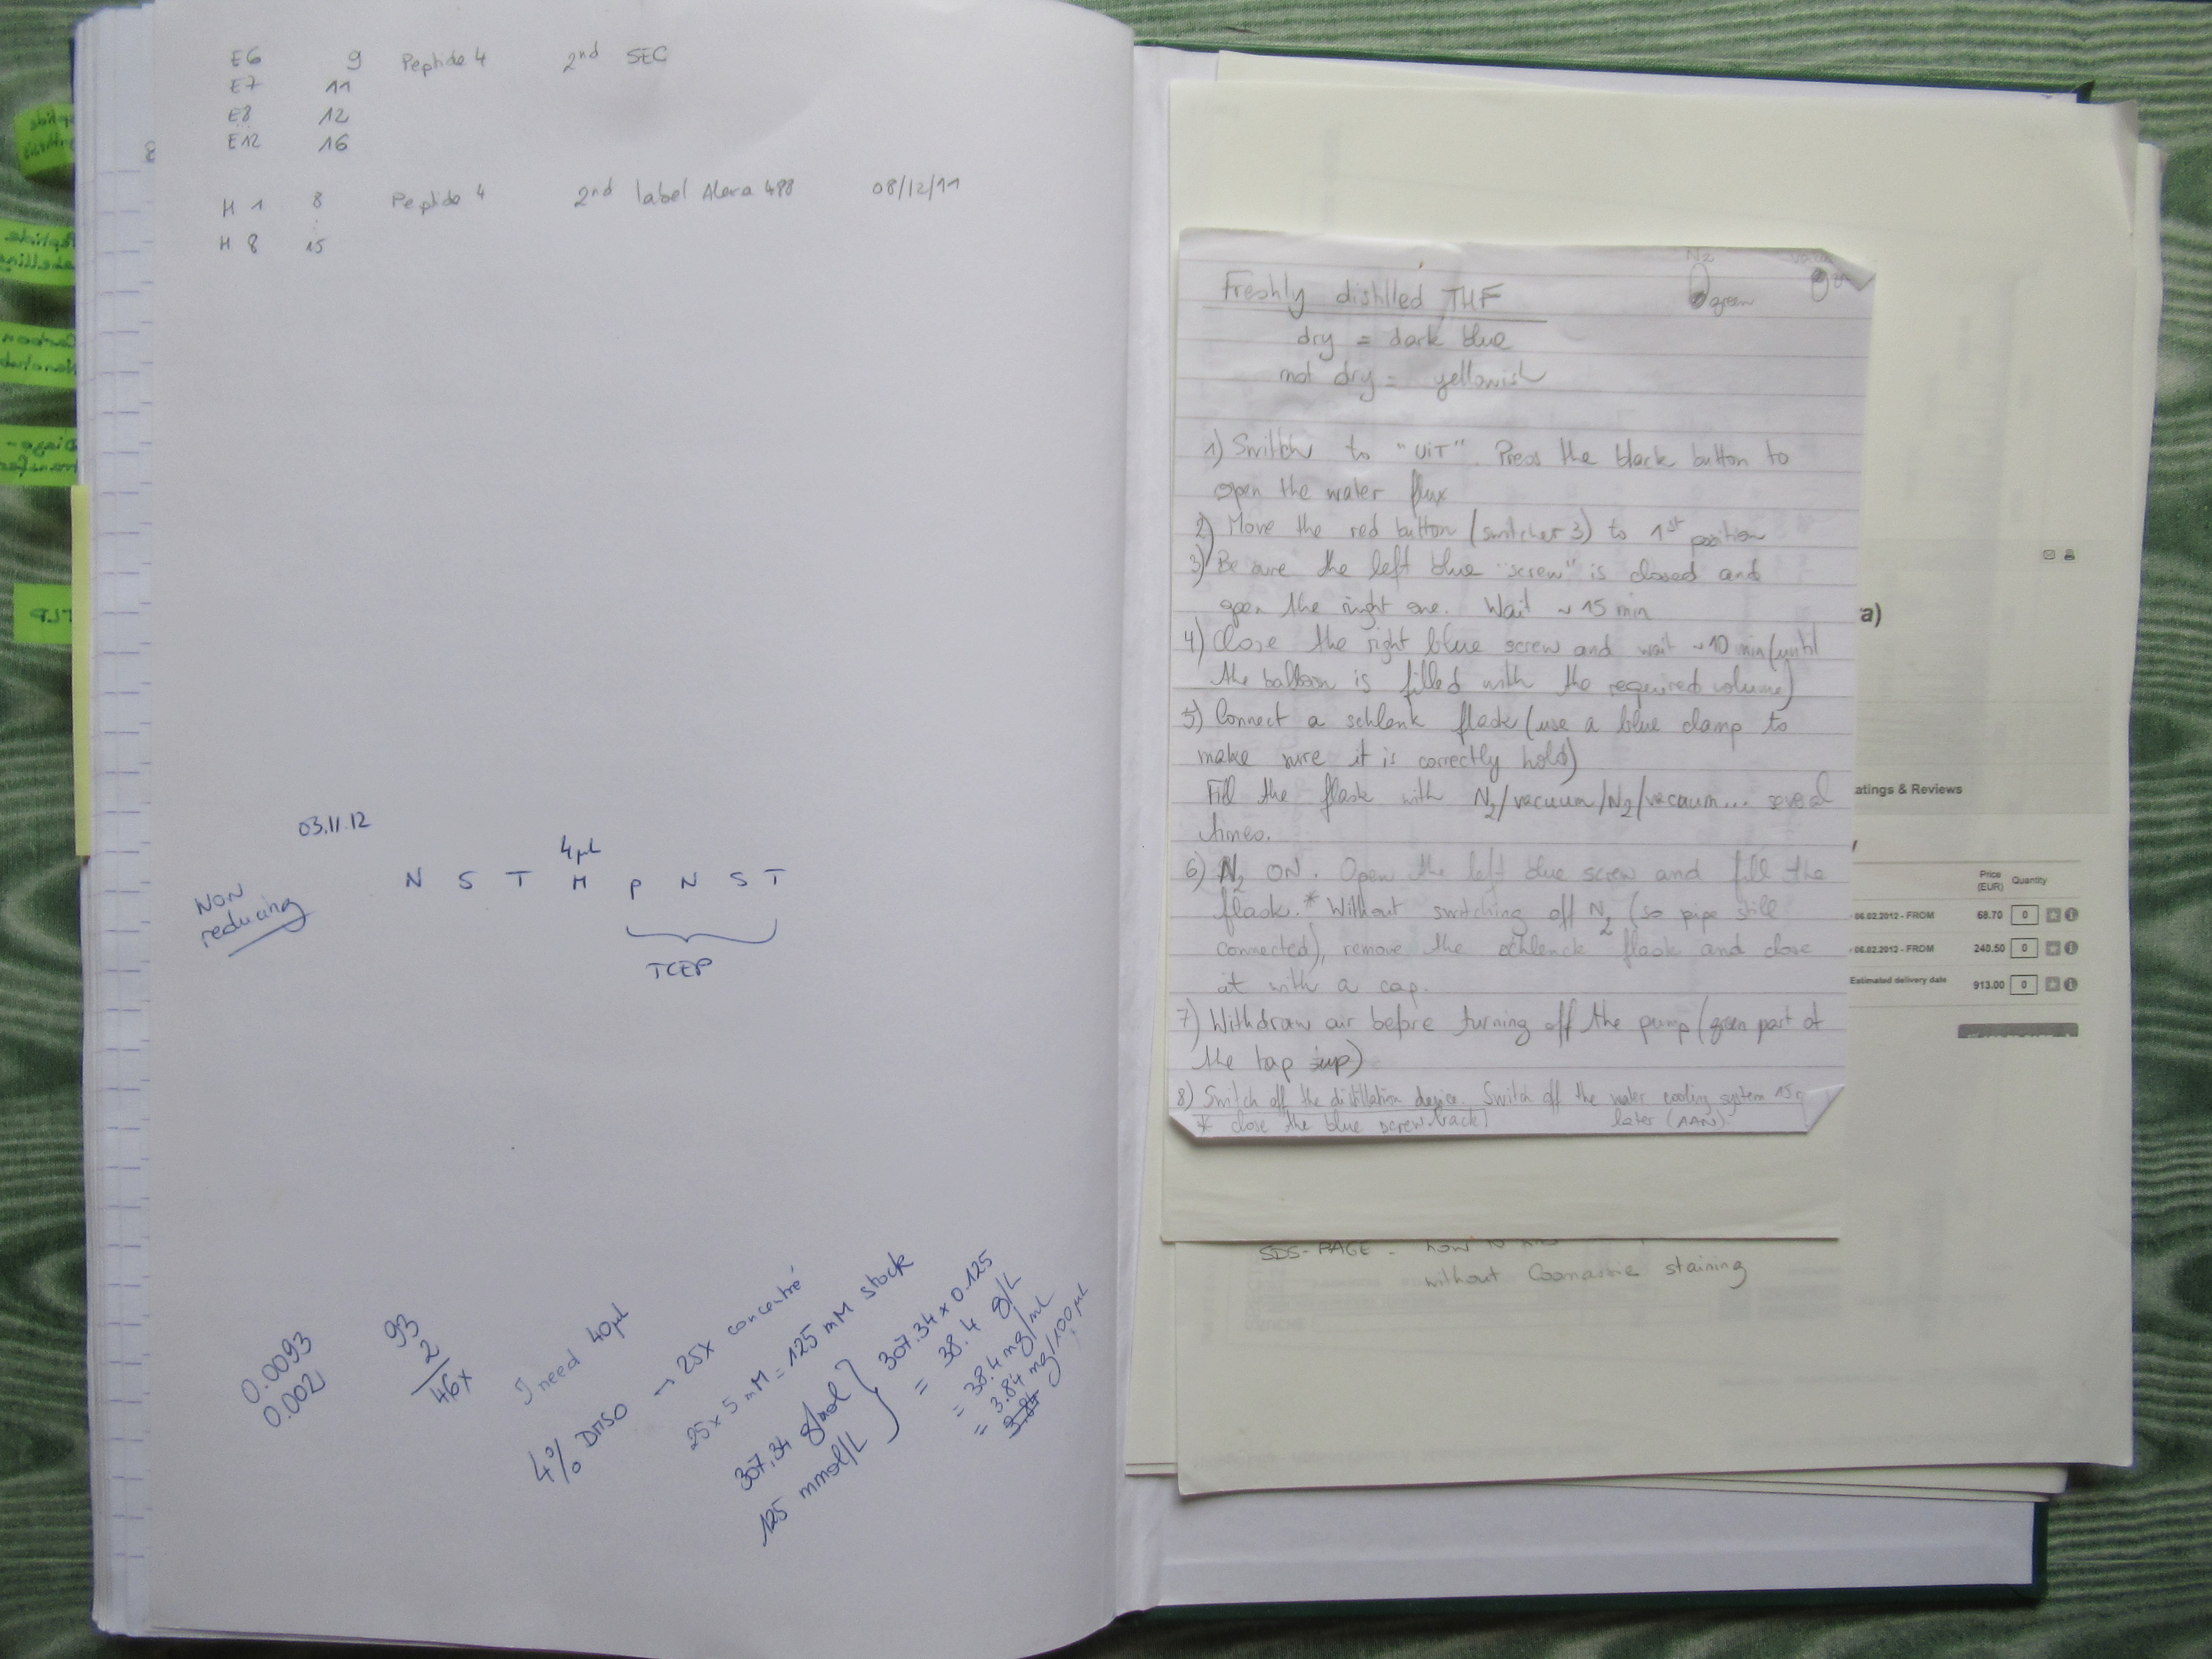 E6 9 Peptide 4 2nd SEC
E7 11
E8 12
E12 16
H 1 8 Peptide 4 2nd label Alexa 488 08/12/11
H 8 15
03.11.12
NON
reducing
4µL
N S T M P N S T
TCEP
0.0093
0.002
93
2
46x
I need 40µl
4% DMSO → 25x concentré
25 x 5 mM = 125 mM stock
307.34 g/mol
125 mmol/L
307.34 x 0.125
= 38.4 g/L
= 38.4 mg/mL
= 3.84 mg/100µL
3.84
N2
green
Freshly distilled THF
dry = dark blue
not dry = yellowish
1) Switch to "UIT". Press the black button to
open the water flux
2) Move the red button (switcher 3) to 1st position
3) Be sure the left blue "screw" is closed and
open the right one. Wait ~ 15 min
4) Close the right blue screw and wait ~10 min (until
the balloon is filled with the required volume)
5) Connect a schlenk flask (use a blue clamp to
make sure it is correctly hold)
Fill the flask with N2/vacuum/N2/vacuum... several
times.
6) N2 ON. Open the left blue screw and fill the
flask.* Without switching off N2 (so pipe still
connected), remove the schlenck flask and close
it with a cap.
7) Withdraw air before turning off the pump (green part of
the tap up)
8) Switch off the distillation device. Switch off the water cooling system 15
later (AAN)
* close the blue screw back
a)
atings & Reviews
Price
(EUR) Quantity
06.02.2012 - FROM 68.70 0
06.02.2012 - FROM 240.50 0
Estimated delivery date 913.00 0
SDS-PAGE - how to
without Coomassie staining